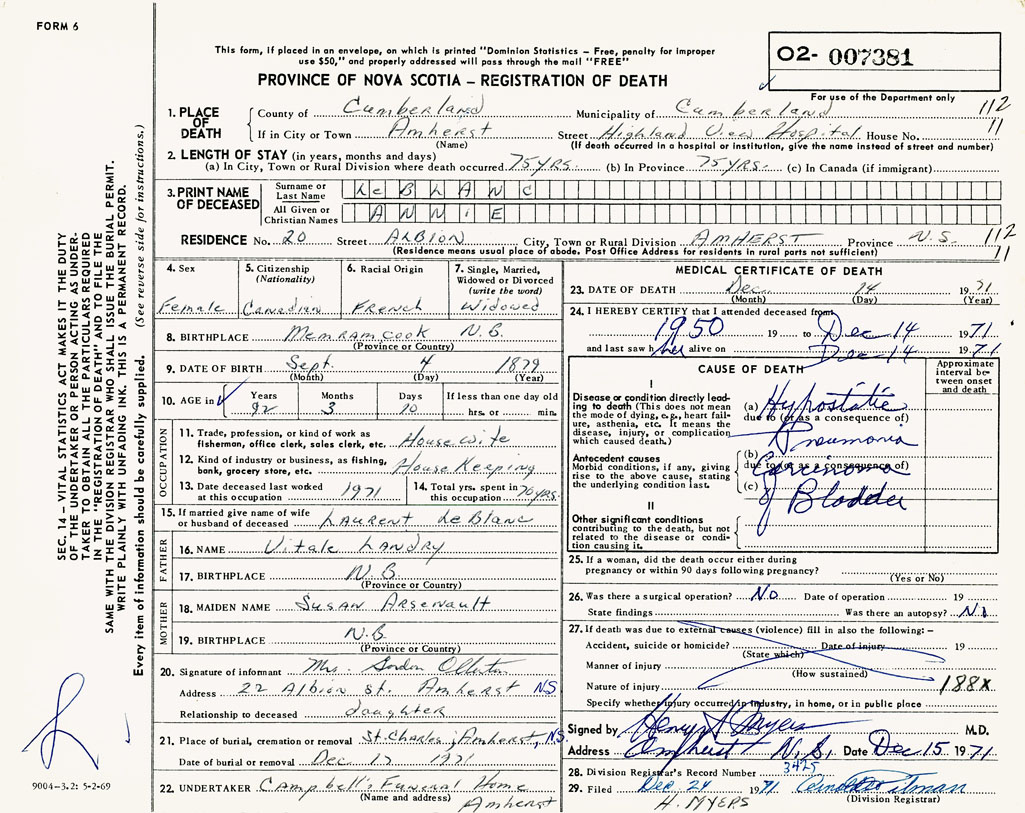 FORM 6
This form, if placed in an envelope, on which is printed "Dominion Statistics – Free, penalty for improper
use $50," and properly addressed will pass through the mail "FREE"
PROVINCE OF NOVA SCOTIA – REGISTRATION OF DEATH
02- 007381
For use of the Department only
1. PLACE OF DEATH
County of Cumberland Municipality of Cumberland 112
If in City or Town Amherst Street Highland View Hospital House No. 11
(Name) (If death occurred in a hospital or institution, give the name instead of street and number)
2. LENGTH OF STAY (in years, months and days)
(a) In City, Town or Rural Division where death occurred 75 YRS. (b) In Province 75 YRS. (c) In Canada (if immigrant)
3. PRINT NAME OF DECEASED
Surname or Last Name LeBLANC
All Given or Christian Names ANNiE
RESIDENCE No. 20 Street ALBION City, Town or Rural Division AMHERST Province N.S. 112
(Residence means usual place of abode. Post Office Address for residents in rural parts not sufficient) 11
4. Sex
Female
5. Citizenship
(Nationality)
Canadian
6. Racial Origin
French
7. Single, Married,
Widowed or Divorced
(write the word)
Widowed
8. BIRTHPLACE Memramcook N.B.
(Province or Country)
9. DATE OF BIRTH Sept. 4 1879
(Month) (Day) (Year)
10. AGE in
Years 92
Months 3
Days 10
If less than one day old
hrs. or min.
OCCUPATION
11. Trade, profession, or kind of work as
fisherman, office clerk, sales clerk, etc. Housewife
12. Kind of industry or business, as fishing,
bank, grocery store, etc. House Keeping
13. Date deceased last worked
at this occupation 1971
14. Total yrs. spent in
this occupation 70 YRS.
15. If married give name of wife
or husband of deceased LAURENT LeBlanc
FATHER
16. NAME Vitale LANDRY
17. BIRTHPLACE N.B.
(Province or Country)
MOTHER
18. MAIDEN NAME Susan Arsenault
19. BIRTHPLACE N.B.
(Province or Country)
20. Signature of informant Mrs. Gordon
Address 22 Albion St. Amherst NS
Relationship to deceased daughter
21. Place of burial, cremation or removal St. Charles, Amherst, NS.
Date of burial or removal Dec 17 1971
22. UNDERTAKER Campbell's Funeral Home
(Name and address) Amherst
MEDICAL CERTIFICATE OF DEATH
23. DATE OF DEATH Dec. 14 1971
(Month) (Day) (Year)
24. I HEREBY CERTIFY that I attended deceased from
1950 19 to Dec 14 1971
and last saw her alive on Dec 14 1971
CAUSE OF DEATH
Approximate
interval be-
tween onset
and death
I
Disease or condition directly lead-
ing to death (This does not mean
the mode of dying, e.g., heart fail-
ure, asthenia, etc. It means the
disease, injury, or complication
which caused death.)
(a) Hypostatic
due to (or as a consequence of)
Pneumonia
Antecedent causes
Morbid conditions, if any, giving
rise to the above cause, stating
the underlying condition last.
(b)
due to (or as a consequence of)
Carcinoma
(c) of Bladder
II
Other significant conditions
contributing to the death, but not
related to the disease or condi-
tion causing it.
25. If a woman, did the death occur either during
pregnancy or within 90 days following pregnancy?
(Yes or No)
26. Was there a surgical operation? No Date of operation 19
State findings Was there an autopsy? No
27. If death was due to external causes (violence) fill in also the following: –
Accident, suicide or homicide? Date of injury 19
(State which)
Manner of injury
(How sustained)
Nature of injury 188X
Specify whether injury occurred in industry, in home, or in public place
Signed by Henry Myers M.D.
Address Amherst N.S. Date Dec 15 1971
28. Division Registrar's Record Number 3425
29. Filed Dec 24 1971
(Division Registrar)
H. MYERS
SEC. 14 – VITAL STATISTICS ACT MAKES IT THE DUTY
OF THE UNDERTAKER OR PERSON ACTING AS UNDER-
TAKER TO OBTAIN ALL THE PARTICULARS REQUIRED
IN THE "REGISTRATION OF DEATH" AND TO FILE THE
SAME WITH THE DIVISION REGISTRAR WHO SHALL ISSUE THE BURIAL PERMIT.
WRITE PLAINLY WITH UNFADING INK. THIS IS A PERMANENT RECORD.
Every item of information should be carefully supplied. (See reverse side for instructions.)
9004–3.2: 5-2-69